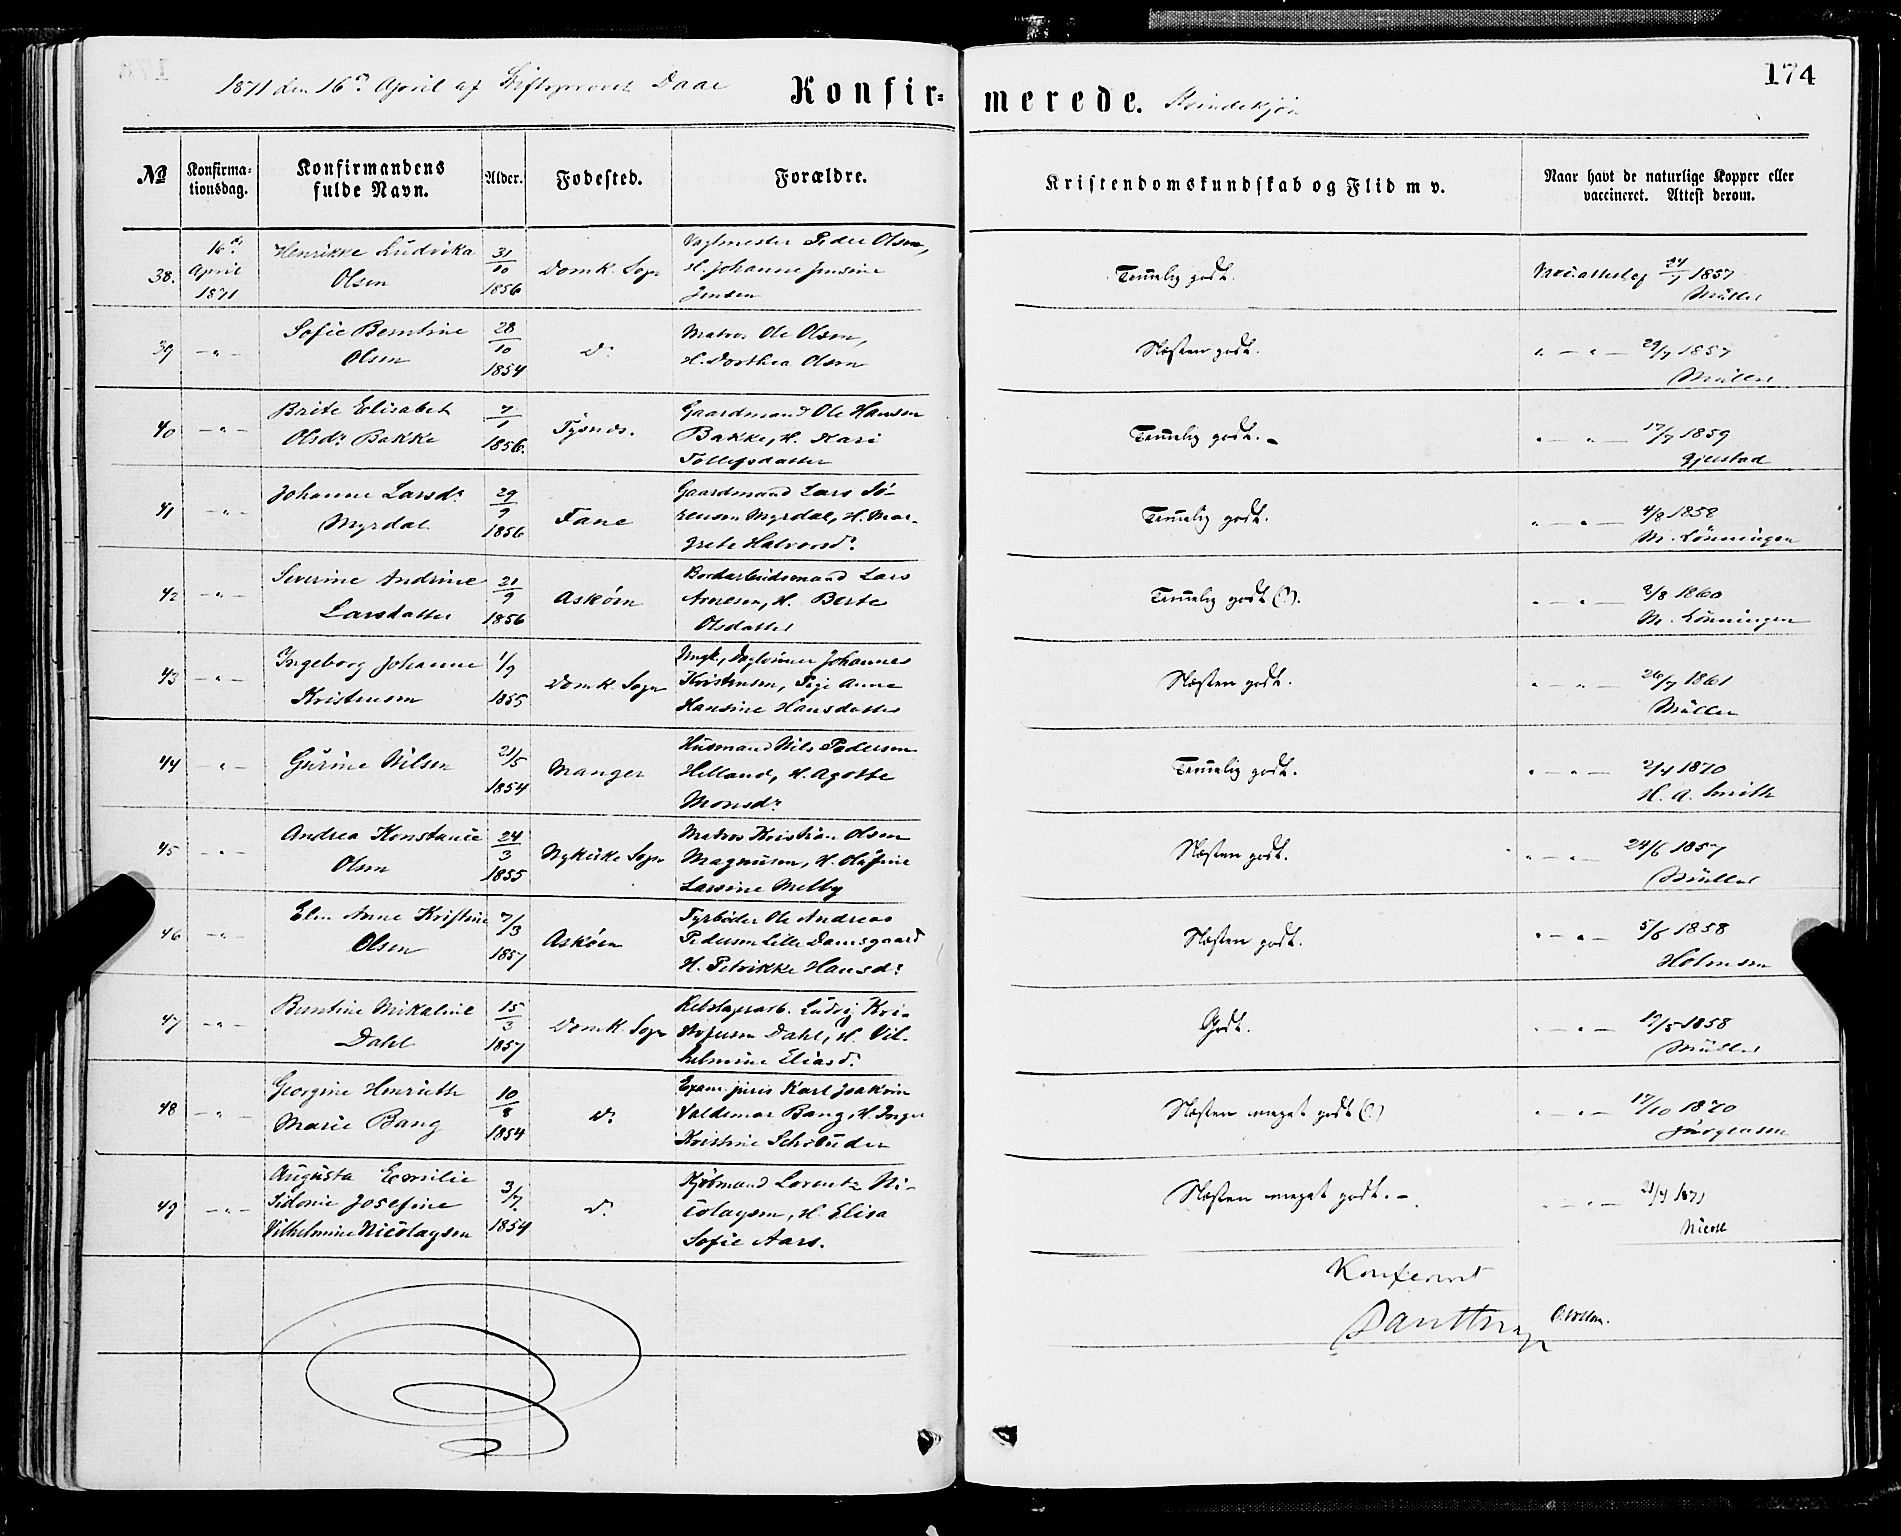 1871 den 16de April af Stiftsprovst Daae
Konfir-
merede. Kvindekjøn
174
№
Konfirma-
tionsdag.
Konfirmandens
fulde Navn.
Alder.
Fødested.
Forældre.
Kristendomskundskab og Flid m v.
Naar havt de naturlige Kopper eller
vaccineret. Attest derom.
38.
16de
April
1871
Henrikke Ludvika
Olsen
31/10
1856
Domk. Sogn
Vagtmester Peder Olsen,
H. Johanne Jensine
Jensen
Temmelig godt.
Vac. attest af 24/7 1857
Müller
39 -"-
Sofie Berntine
Olsen
28/10
1854
do
Matros Ole Olsen,
H. Dorthea Olsen
Næsten godt.
" - " - 29/7 1857
Müller
40 -"-
Brite Elisabet
Olsdr Bakke
7/1
1856.
Tysnæs.
Gaardmand Ole Hansen
Bakke, H. Kari
Tollefsdatter
Temmelig godt. -
" - " - 17/7 1859
Gjerstad
41 -"-
Johanne Larsdr
Myrdal
29/9
1856
Fane
Gaardmand Lars Sø-
rensen Myrdal, H. Mar-
grete Halvorsdr
Temmelig godt.
" - " - 4/8 1858
M. Lönningen
42 -"-
Severine Andrine
Larsdatter
21/9
1856
Askøen
Bordarbeidsmand Lars
Arnesen, H. Berte
Olsdatter
Temmelig godt (?).
" - " - 2/8 1860
M. Lönningen
43 -"-
Ingeborg Johanne
Kristensen
1/9
1855
Domk. Sogn
Ungk., Dagleiner Johannes
Kristensen, Pige Anne
Hansine Hansdatter
Næsten godt.
" - " - 26/7 1861
Müller
44 -"-
Gurine Nilsen
21/5
1854
Manger
Husmand Nils Pedersen
Helland, H. Agotte
Monsdr
Temmelig godt.
" - " - 2/4 1870
H. A. Smith
45 -"-
Andrea Konstance
Olsen
24/3
1855
Nykirke Sogn
Matros Kristian Olsen
Magnusen, H. Olufine
Larsine Melby
Næsten godt.
" - " - 24/6 1857
Müller
46 -"-
Elen Anne Kristine
Olsen
7/3
1857
Askøen
Fyrbøder Ole Andreas
Pedersen Lille Damsgaard
H. Petrikke Hansdr
Næsten godt.
" - " - 5/6 1858
Holmsen
47 -"-
Berntine Mikaline
Dahl
15/3
1857
Domk. Sogn
Rebslagerarb. Ludvig Kri-
stofersen Dahl, H. Vil-
helmine Eliasdr
Godt.
" - " - 19/5 1858
Müller
48 -"-
Georgine Henriette
Marie Bang
10/8
1854
do
Exam. juris Karl Joakim
Valdemar Bang, H. Inger
Kristine Schrøuder
Næsten meget godt (?)
" - " - 17/10 1870
Jürgensen
49 -"-
Augusta Emilie
Sidonie Josefine
Vilhelmine Nicolaysen
3/7
1854
do
Kjøbmand Lorentz Ni-
colaysen, H. Elisa
Sofie Aars.
Næsten meget godt. -
" - " - 21/4 1871
Konfereret